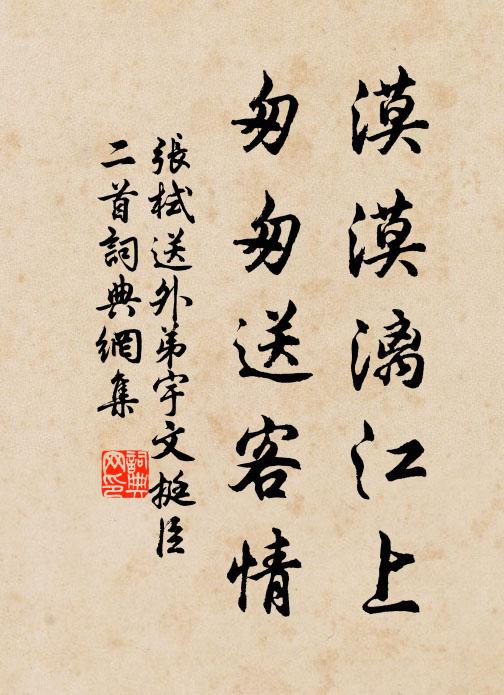 漠漠漓江上
匆匆送客情
張栻送外弟宇文挺臣
二首詞典網集
詞典
网印